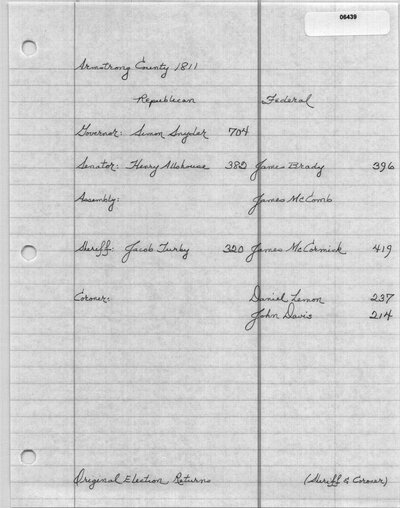 06439
Armstrong County 1811
Republican Federal
Governor: Simon Snyder 704
Senator: Henry Allshouse 382 James Brady 396
Assembly: James McComb
Sheriff: Jacob Turby 320 James McCormick 419
Coroner: Daniel Lemon 237
John Davis 214
Original Election Returns (Sheriff & Coroner)